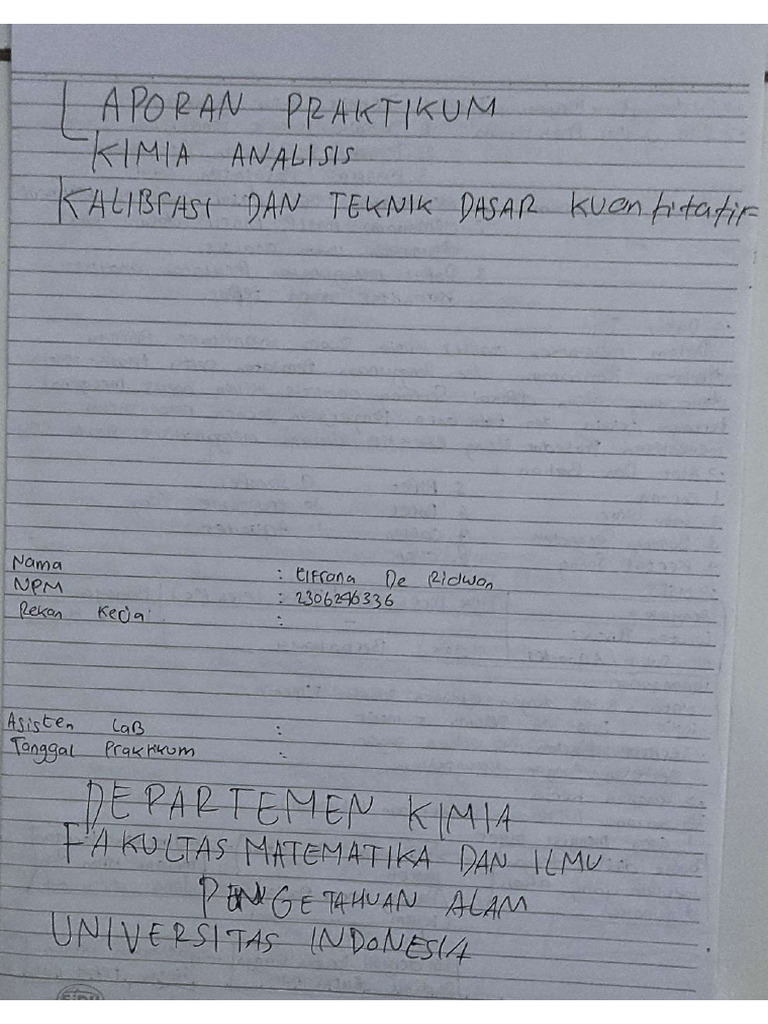 LAPORAN PRAKTIKUM
KIMIA ANALISIS
KALIBRASI DAN TEKNIK DASAR kuantitatif
Nama : Elfrana De Ridwan
NPM : 2306246336
Rekan Kerja :
Asisten LaB :
Tanggal Praktikum :
DEPARTEMEN KIMIA
FAKULTAS MATEMATIKA DAN ILMU
PENGETAHUAN ALAM
UNIVERSITAS INDONESIA